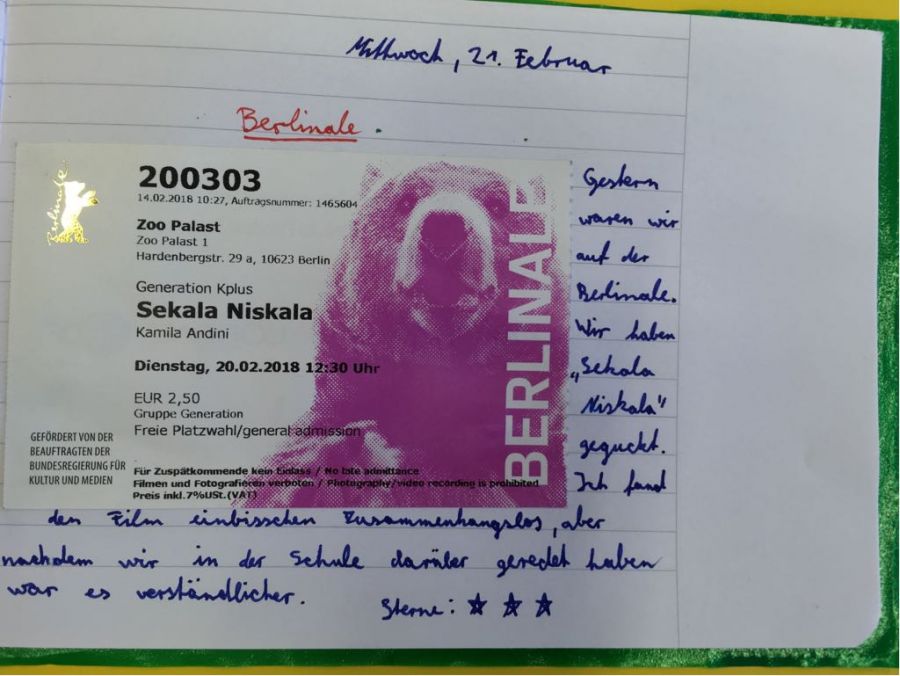 Mittwoch, 21. Februar
Berlinale.
Berlinale
200303
14.02.2018 10:27, Auftragsnummer: 1465604
Zoo Palast
Zoo Palast 1
Hardenbergstr. 29 a, 10623 Berlin
Generation Kplus
Sekala Niskala
Kamila Andini
Dienstag, 20.02.2018 12:30 Uhr
EUR 2,50
Gruppe Generation
Freie Platzwahl/general admission
GEFÖRDERT VON DER
BEAUFTRAGTEN DER
BUNDESREGIERUNG FÜR
KULTUR UND MEDIEN
Für Zuspätkommende kein Einlass / No late admittance
Filmen und Fotografieren verboten / Photography/video recording is prohibited
Preis inkl.7%USt.(VAT)
BERLINALE
Gestern
waren wir
auf der
Berlinale.
Wir haben
„Sekala
Niskala"
geguckt.
Ich fand
den Film einbisschen zusammenhangslos, aber
nachdem wir in der Schule darüber geredet haben
war es verständlicher. Sterne: ★ ★ ★